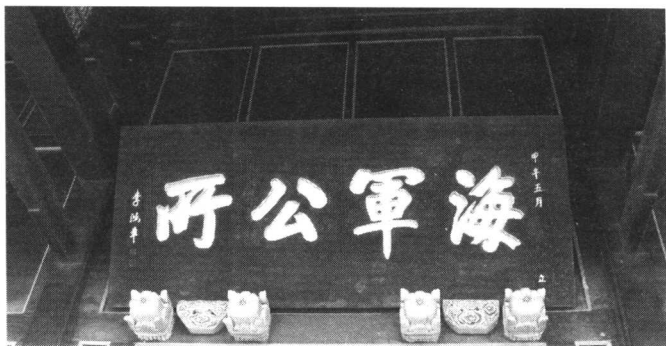 甲午五月
立
海軍公所
李鴻章